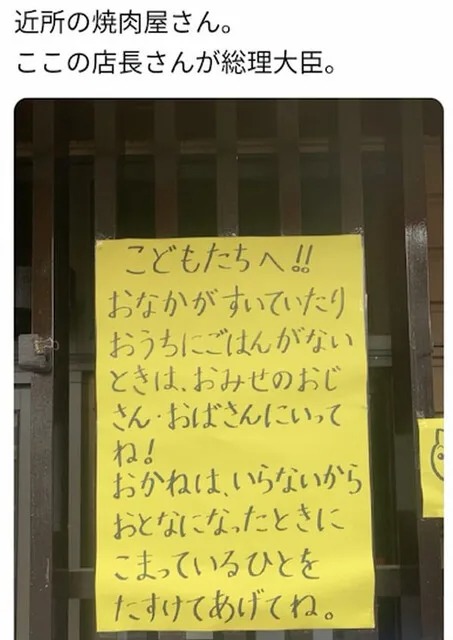 近所の焼肉屋さん。
ここの店長さんが総理大臣。
こどもたちへ!!
おなかがすいていたり
おうちにごはんがない
ときは、おみせのおじ
さん・おばさんにいって
ね!
おかねは、いらないから
おとなになったときに
こまっているひとを
たすけてあげてね。